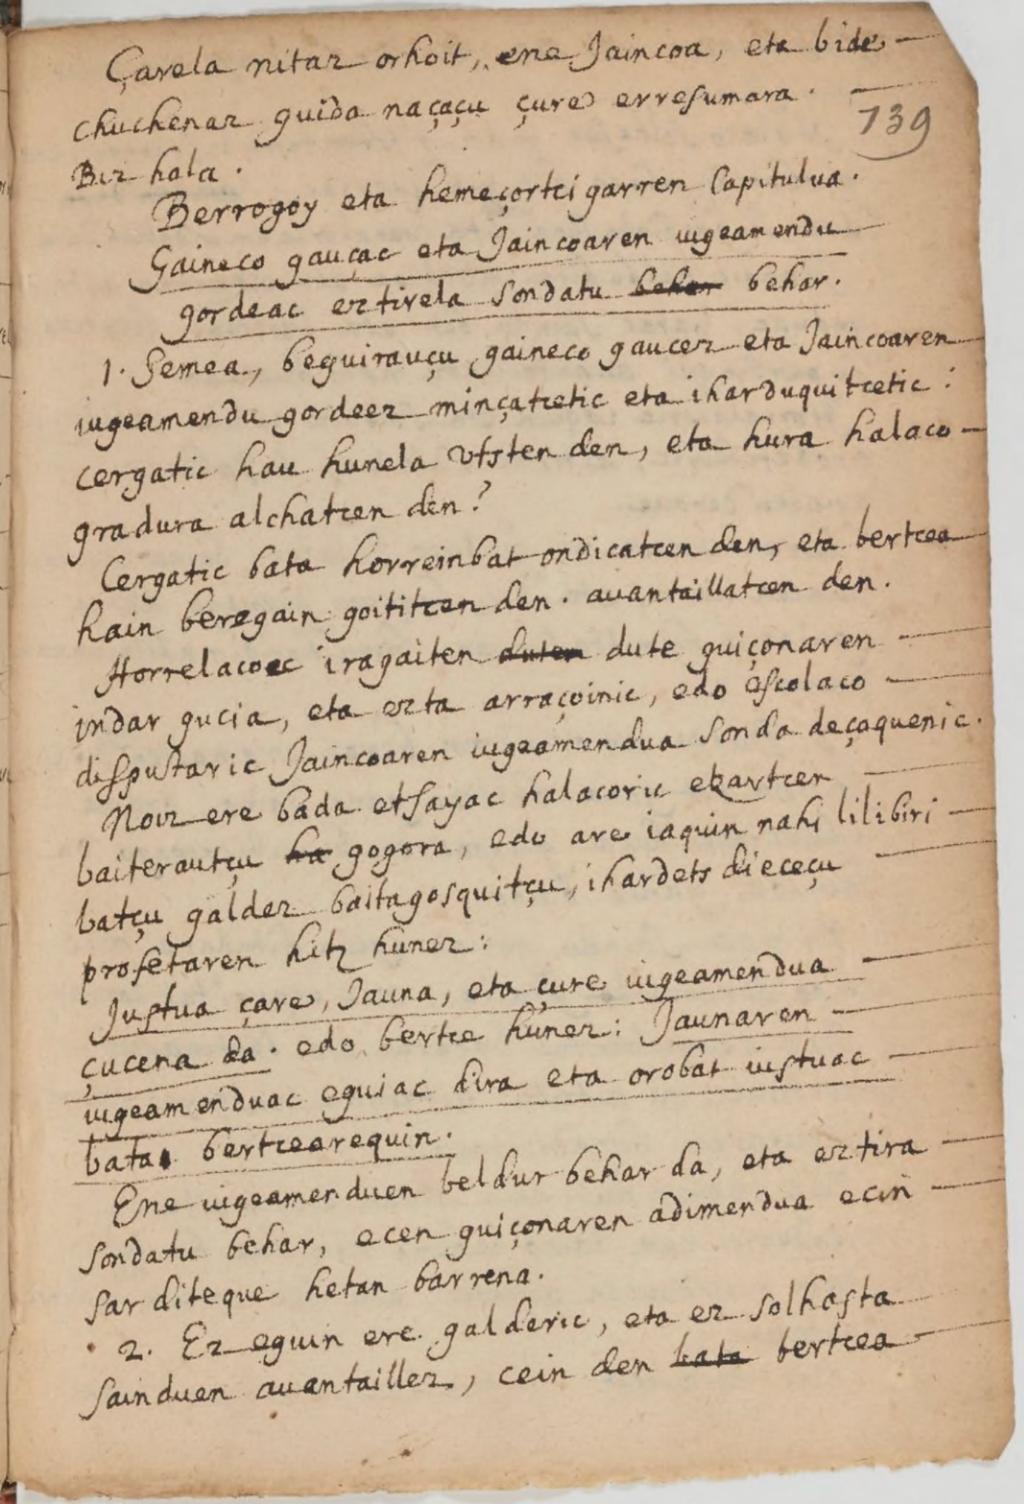 Çarela nitaz orhoit, ene Jaincoa, eta bide
chuchenaz guida naçaçu çure erresumara.
139
Biz hala.
Berrogoy eta hemeçortci garren Capitulua.
Gaineco gauçac eta Jaincoaren iugeamendu
gordeac eztirela sondatu behar behar.
1. Semea, beguirauçu gaineco gaucez eta Jaincoaren
iugeamendu gordeez minçatcetic eta iharduquitcetic:
cergatic hau hunela vtsten den, eta hura halaco
gradura alchatcen den?
Cergatic bata horreinbat ondicatcen den, eta bertcea
hain beregain goititcen den. auantaillatcen den.
Horrelacoec iragaiten duten dute guiçonaren
indar gucia, eta ezta arraçoinic, edo escolaco
disputaric Jaincoaren iugeamendua sonda deçaquenic.
Noiz ere bada etsayac halacoric ekartcen
baiterautçu ha gogora, edo are iaquin nahi lilibiri
batçu galdez baitagosquitçu, ihardets dieceçu
profetaren hitz hunez:
Justua çare, Jauna, eta çure iugeamendua
çucena da. edo bertce hunez: Jaunaren
iugeamenduac eguiac dira eta orobat iustuac
bata bertcearequin.
Ene iugeamenduen beldur behar da, eta eztira
sondatu behar, ecen guiçonaren adimendua ecin
sar diteque hetan barrena.
2. Ez eguin ere galderic, eta ez solhasta
sainduen auantaillez, cein den bata bertcea